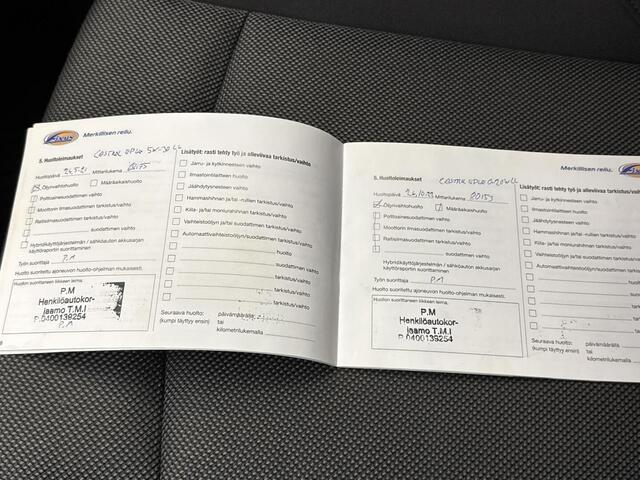 FIXUS
Merkillisen reilu.
5. Huoltoleimaukset
Lisätyöt: rasti tehty työ ja olieviivaa tarkistus/vaihto
Huoltopäivä
Mittarilukema
Öljynvaihtohuolto
Määräaikaishuolto
Polttoainesuodattimen vaihto
Moottorin ilmasuodattimen vaihto
Raitisilmasuodattimen vaihto
suodattimen vaihto
Hybridikäyttöjärjestelmän / sähköauton akkusarjan
käyttöraportin suorittaminen
Työn suorittaja P.M
Huolto suoritettu ajoneuvon huolto-ohjelman mukaisesti.
Huollon suorittaneen liikkeen leima.
P.M
Henkilöautokor-
jaamo T.M.I
P.0400139254
P.M
Jarru- ja kytkinnesteen vaihto
Ilmastointilaitteen huolto
Jäähdytysnesteen vaihto
Hammashihnan ja/tai -rullien tarkistus/vaihto
Kiila- ja/tai moniurahihnan tarkistus/vaihto
Vaihteistoöljyn ja/tai suodattimen tarkistus/vaihto
Automaattivaihteistoöljyn/suodattimen tarkistus/vaihto
huolto
suodattimen vaihto
tarkistus/vaihto
tarkistus/vaihto
tarkistus/vaihto
Seuraava huolto:
(kumpi täyttyy ensin)
päivämäärällä
tai
kilometrilukemalla
Merkillisen reilu.
5. Huoltoleimaukset
Huoltopäivä 26.10.22 Mittarilukema
Öljynvaihtohuolto
Määräaikaishuolto
Polttoainesuodattimen vaihto
Moottorin ilmasuodattimen vaihto
Raitisilmasuodattimen vaihto
suodattimen vaihto
Hybridikäyttöjärjestelmän / sähköauton akkusarjan
käyttöraportin suorittaminen
Työn suorittaja P.M
Huolto suoritettu ajoneuvon huolto-ohjelman mukaisesti.
Huollon suorittaneen liikkeen leima.
P.M
Henkilöautokor-
jaamo T.M.I
P.0400139254
Lisätyöt: rasti tehty työ ja olieviivaa tarkistus/vaihto
Jarru- ja kytkinnesteen vaihto
Ilmastointilaitteen huolto
Jäähdytysnesteen vaihto
Hammashihnan ja/tai -rullien tarkistus
Kiila- ja/tai moniurahihnan tarkistus/
Vaihteistoöljyn ja/tai suodattimen tarkistus
Automaattivaihteistoöljyn/suodattimen tarkistus/
huolto
Seuraava huolto:
(kumpi täyttyy ensin)
päivämäärällä
tai
kilometrilukemalla